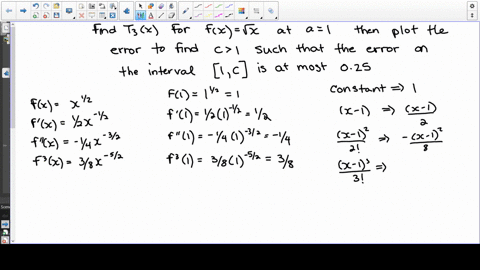 find T₃(x) for f(x)=√x at a=1 then plot the
error to find c>1 such that the error on
the interval [1,c] is at most 0.25
f(x) = x^1/2
f'(x) = 1/2 x^-1/2
f"(x) = -1/4 x^-3/2
f³(x) = 3/8 x^-5/2
f(1) = 1^1/2 = 1
f'(1) = 1/2 (1)^-1/2 = 1/2
f"(1) = -1/4 (1)^-3/2 = -1/4
f³(1) = 3/8 (1)^-5/2 = 3/8
constant ⇒ 1
(x-1) ⇒ (x-1)/2
(x-1)²/2! ⇒ -(x-1)²/8
(x-1)³/3! ⇒